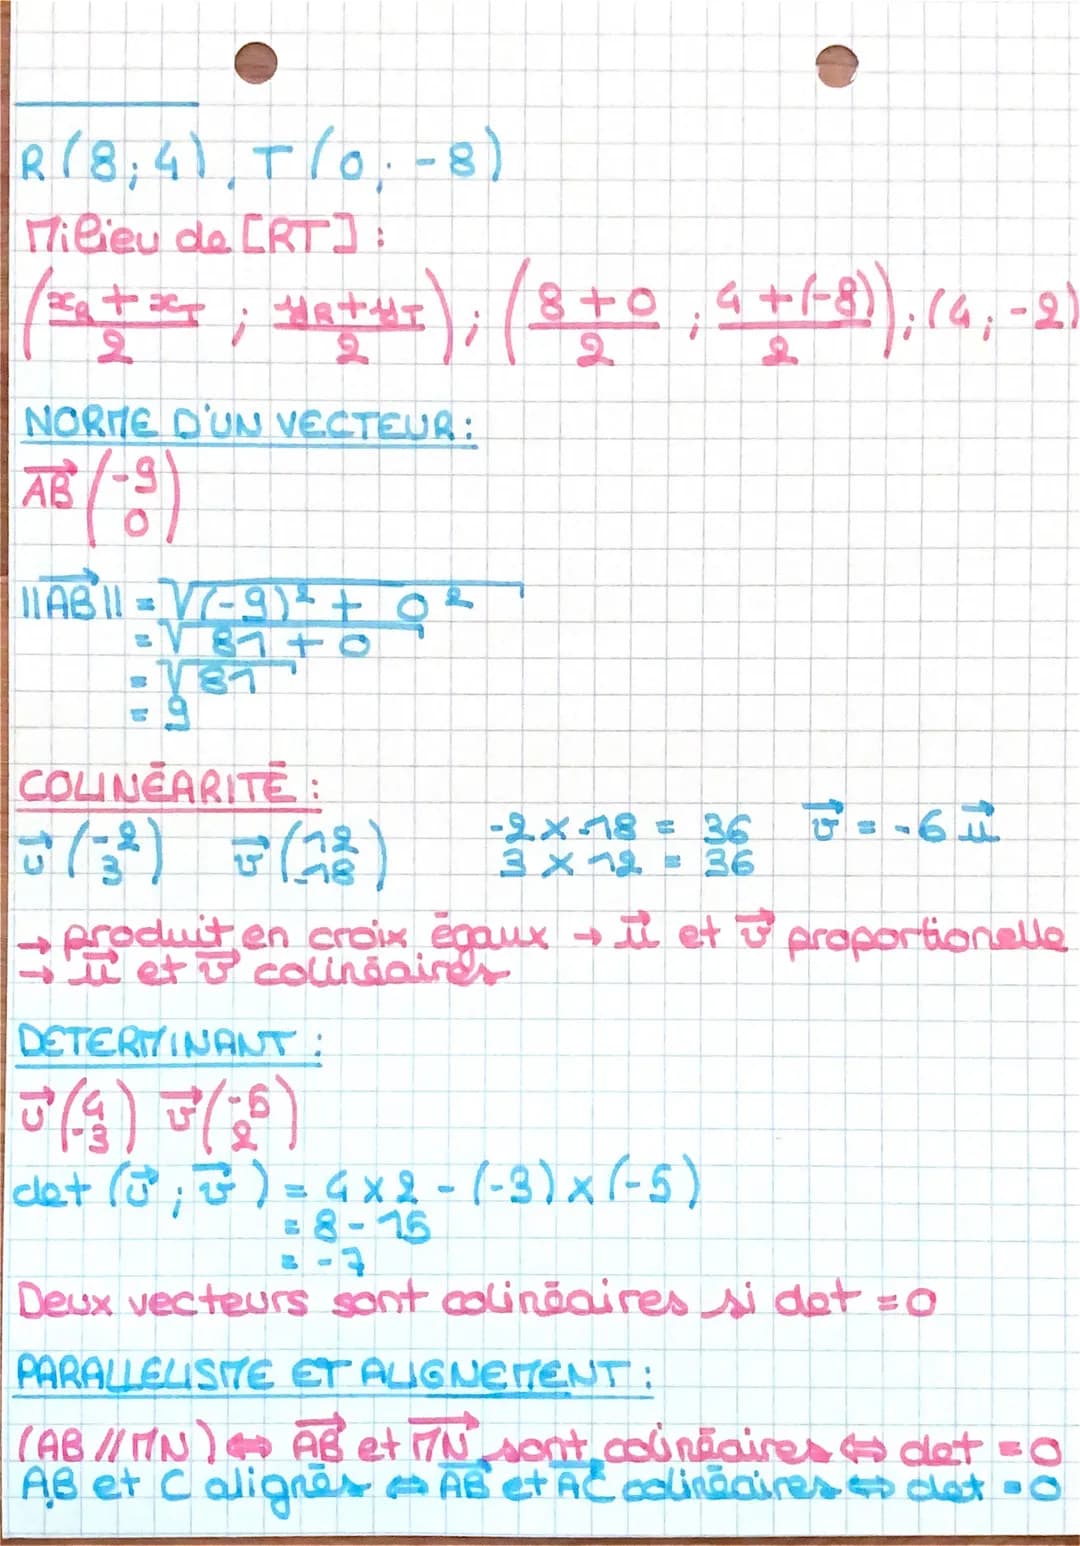 R(8;4), T(0;-8)
Milieu de [RT] :
(xR + xT / 2 ; yR + yT / 2) ; (8+0 / 2 ; 4+(-8) / 2) ; (4;-2)
NORME D'UN VECTEUR :
AB→ (-9 0)
||AB→|| = √(-9)² + 0²
= √81 + 0
= √81
= 9
COLINÉARITÉ :
u→ (-2 3) v→ (12 -18) -2 x -18 = 36 v→ = -6 u→
3 x 12 = 36
→ produit en croix égaux → u→ et v→ proportionelle
→ u→ et v→ colinéaires
DETERMINANT :
u→ (4 -3) v→ (-5 2)
det (u→ ; v→) = 4 x 2 - (-3) x (-5)
= 8 - 15
= -7
Deux vecteurs sont colinéaires si det = 0
PARALLELISME ET ALIGNEMENT :
(AB // MN) ⇔ AB→ et MN→ sont colinéaires ⇔ det = 0
A,B et C alignés ⇔ AB→ et AC→ colinéaires ⇔ det = 0